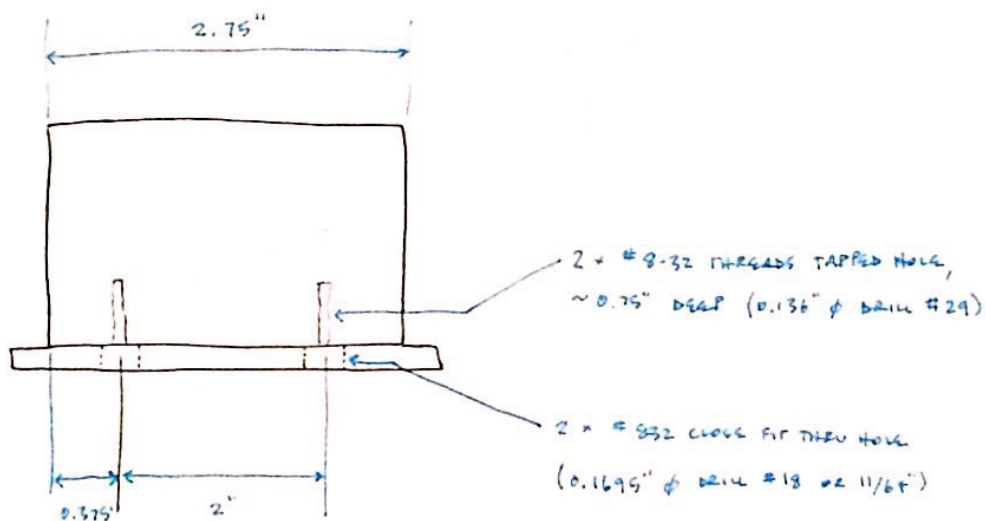 2.75"
2 x #8-32 THREADS TAPPED HOLE,
~ 0.75" DEEP (0.136" ϕ DRILL #29)
2 x #832 CLOSE FIT THRU HOLE
(0.1695" ϕ DRILL #18 OR 11/64")
0.375"
2"